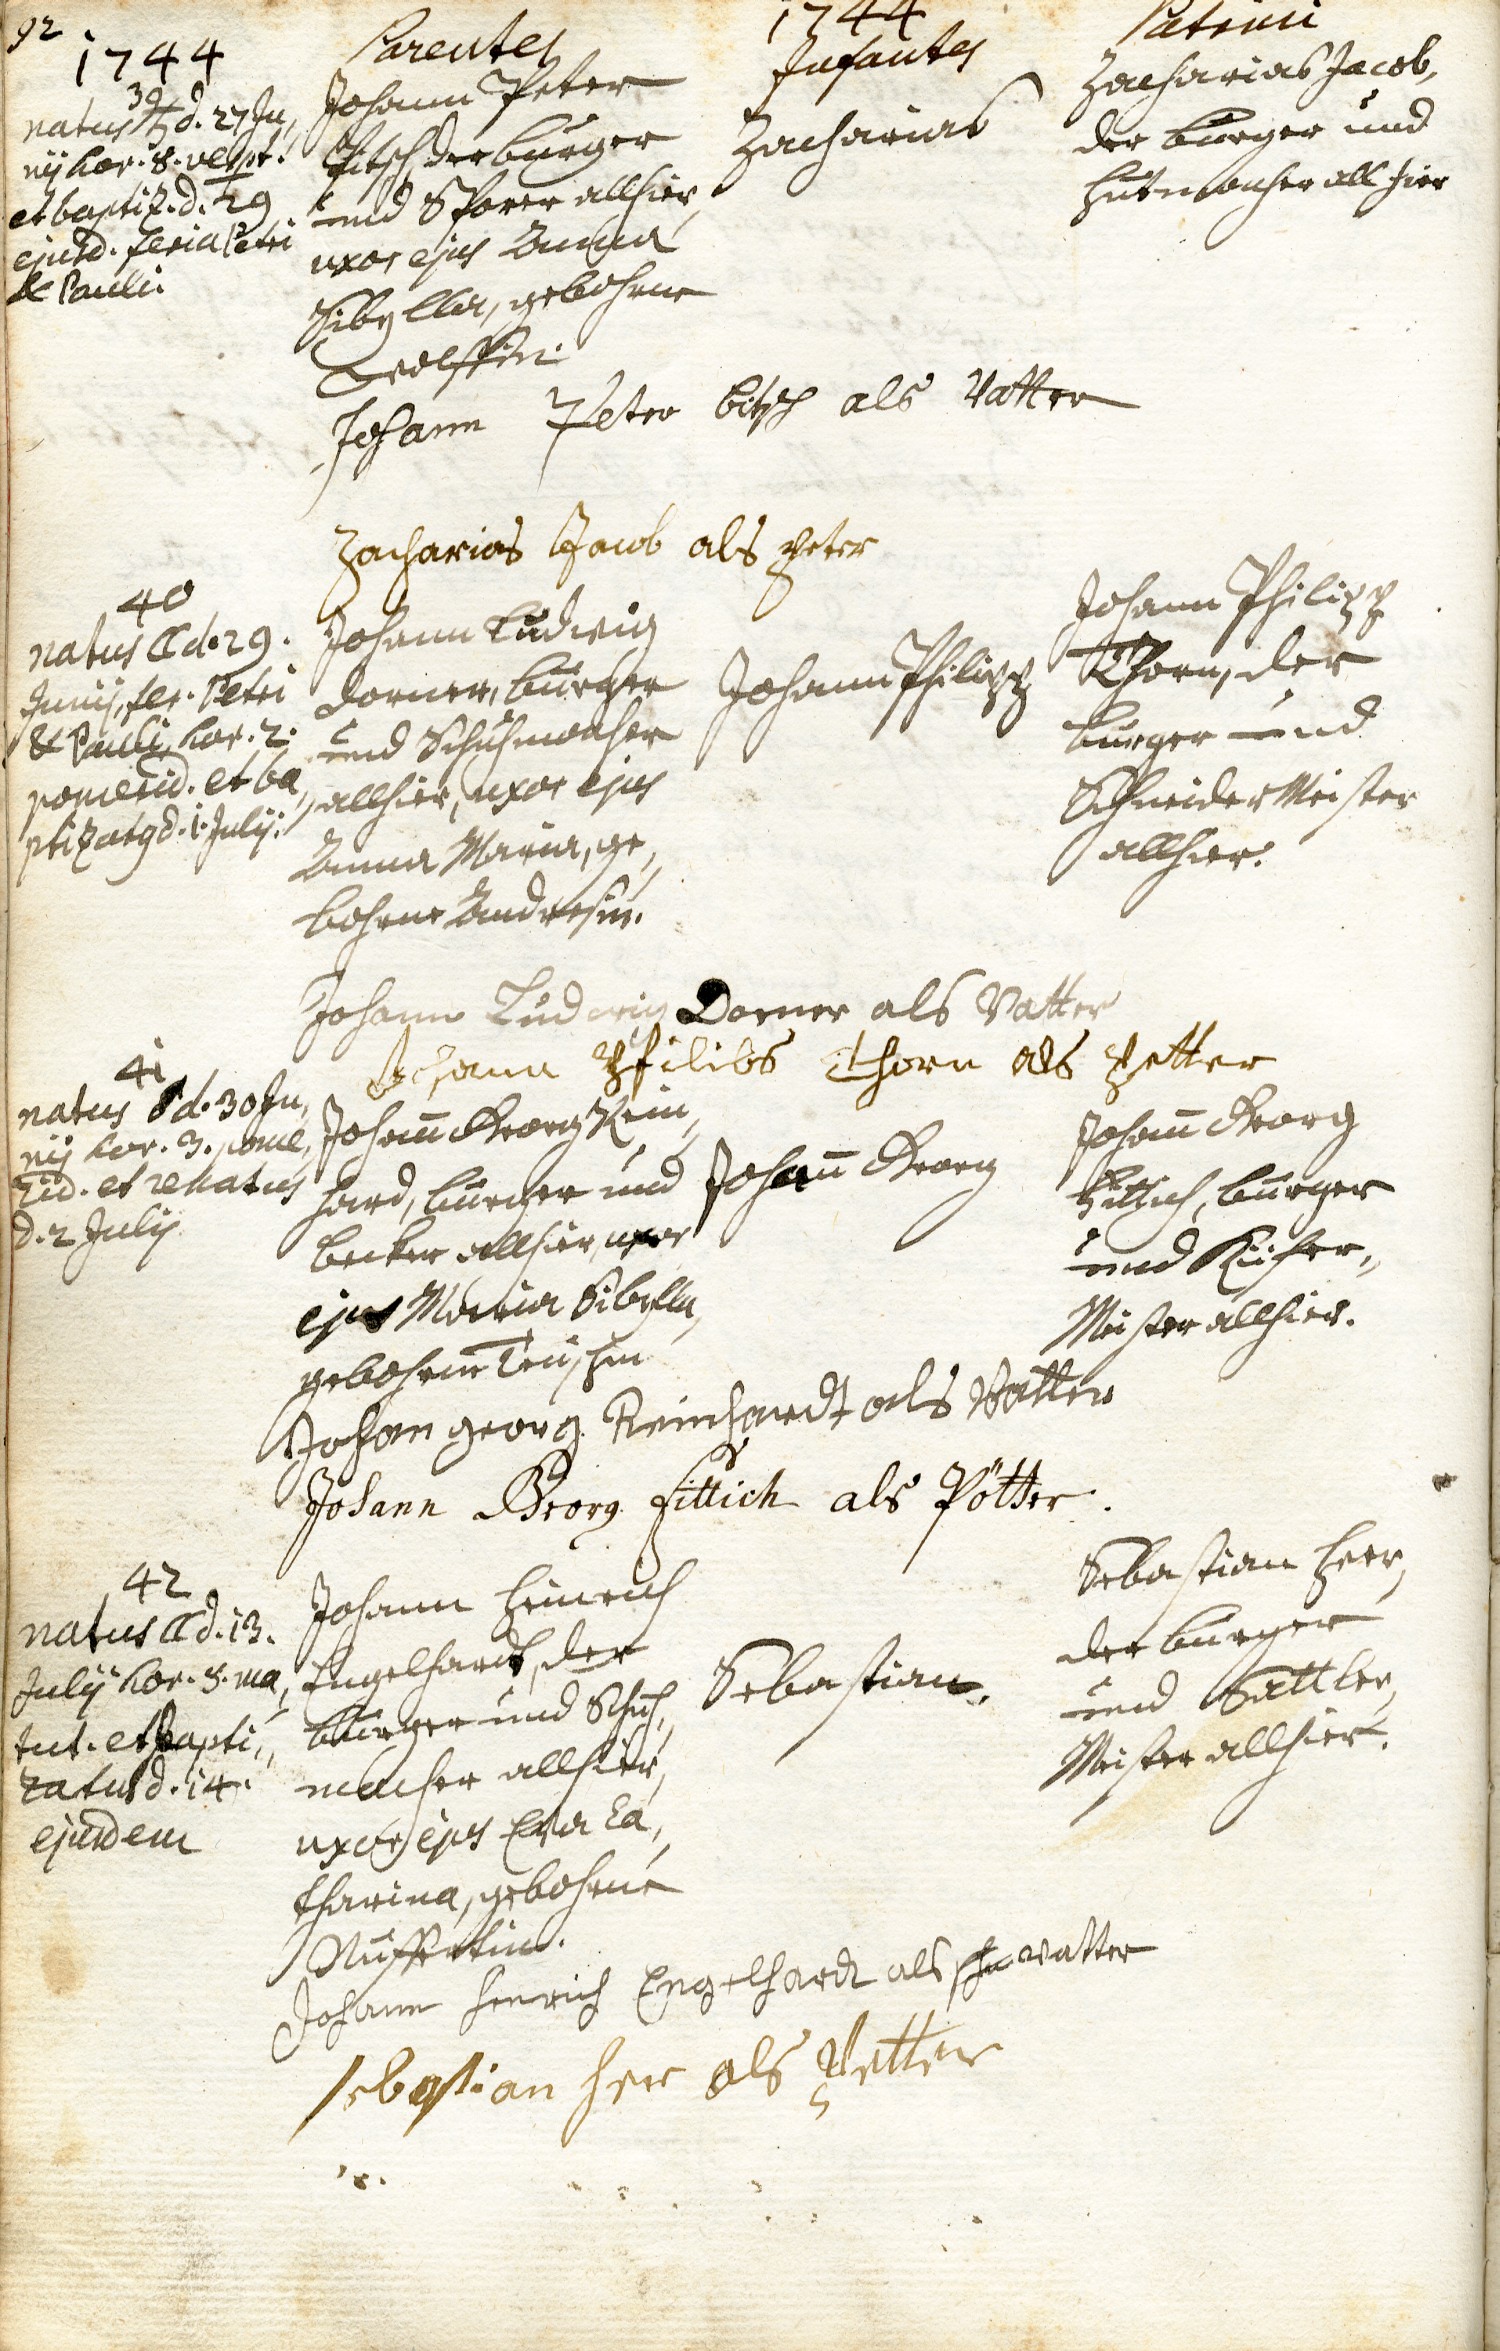 92
1744
Parentes
1744
Infantes
Patrini
39
natus ♄ d. 27 Ju,
nij hor. 8. vespt.
et baptiz. d. 29
ejusd. feria Petri
& Pauli.
Johann Peter
Pitsch, der burger
und Sporer allhier,
uxor ejus Anna
Sibylla, gebohrne
Wolffin.
Zacharias
Zacharias Jacob,
der burger und
Hutmacher allhier
Johann Peter bitsch als Vatter
Zacharias Jacob als Peter
40
natus ☾ d. 29.
Junij, fer. Petri
& Pauli, hor. 2.
pomerid. et ba,
ptizatg d. 1. Julij.
Johann Ludwig
Dorner, burger
und Schuhmacher
allhier, uxor ejus
Anna Maria, ge,
bohrne Andresin.
Johann Philipp
Johann Philipp
Thorn, der
burger und
Schneider Meister
allhier.
Johann Ludwig Dorner als Vatter
Johann Philibs Thorn als Petter
41
natus ♂ d. 30 Ju,
nij hor. 3. pome,
rid. et renatus
d. 2 Julij
Johann Georg Rein,
hard, burger und
becker allhier, uxor
ejus Maria Sibylla,
gebohrne
Johann Georg
Johann Georg
Fittich, burger
und Küfer,
Meister allhier.
Johan georg Reinhardt als Vatter
Johann Georg fittich als Pötter.
42
natus ☾ d. 13.
Julij hor. 5. ma,
tut. et bapti,
zatus d. 14.
ejusdem
Johann Heinrich
Engelhardt, der
burger und Schuh,
macher allhier,
uxor ejus Eva Ca,
tharina, gebohrne
Nuffertin.
Sebastian.
Sebastian Heer,
der burger
und Sattler,
Meister allhier.
Johann Henrich Engelhardt als vatter
sebastian heer als Petter